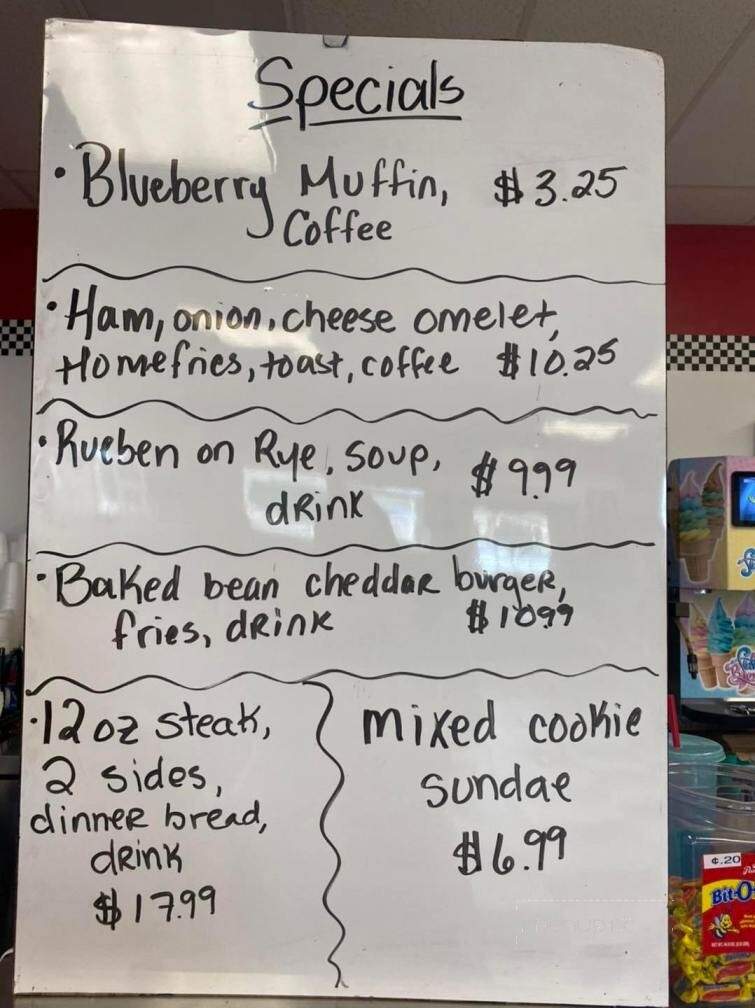 Specials
• Blueberry Muffin, $3.25
Coffee
• Ham, onion, cheese omelet,
Homefries, toast, coffee $10.25
• Rueben on Rye, soup, $9.99
drink
• Baked bean cheddar burger,
fries, drink $10.99
• 12 oz steak,
2 sides,
dinner bread,
drink
$17.99
mixed cookie
sundae
$6.99
¢.20
Bit-O